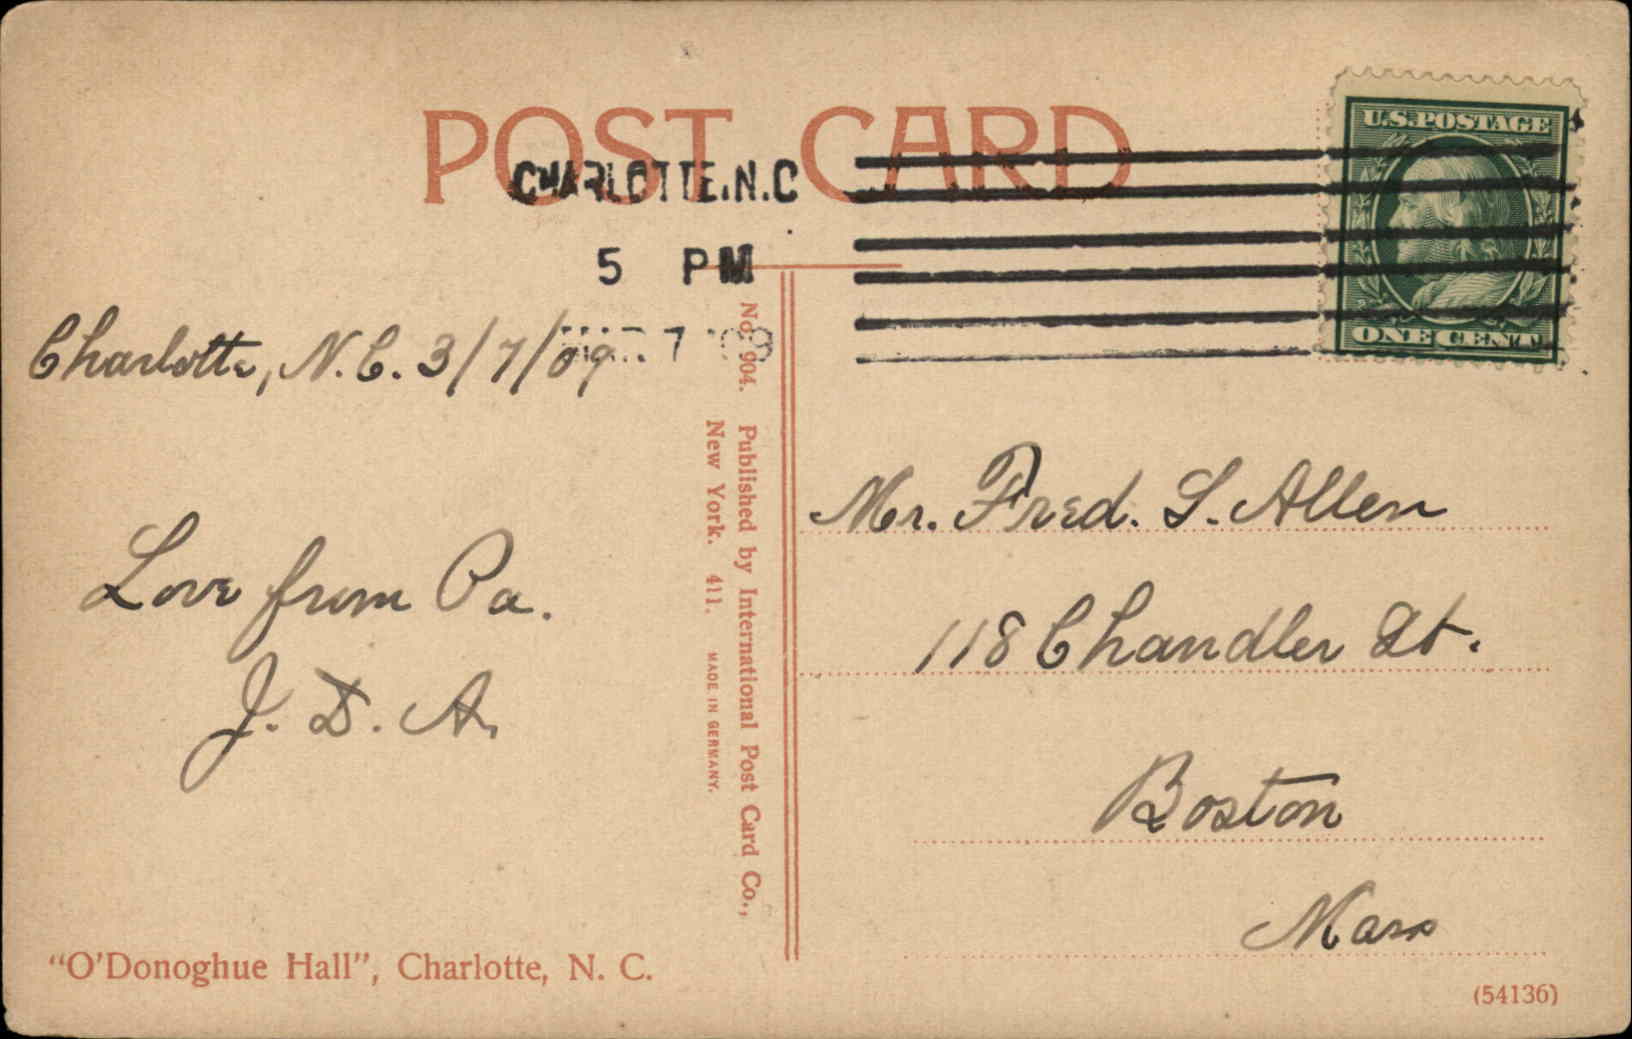 POST CARD
CHARLOTTE, N.C
5 PM
7
U.S. POSTAGE
ONE CENT
Charlotte, N.C. 3/7/09
Love from Pa.
J. D. A.
No. 904. Published by International Post Card Co.,
New York. 411. MADE IN GERMANY.
Mr. Fred. S. Allen
118 Chandler St.
Boston
Mass
"O'Donoghue Hall", Charlotte, N. C.
(54136)